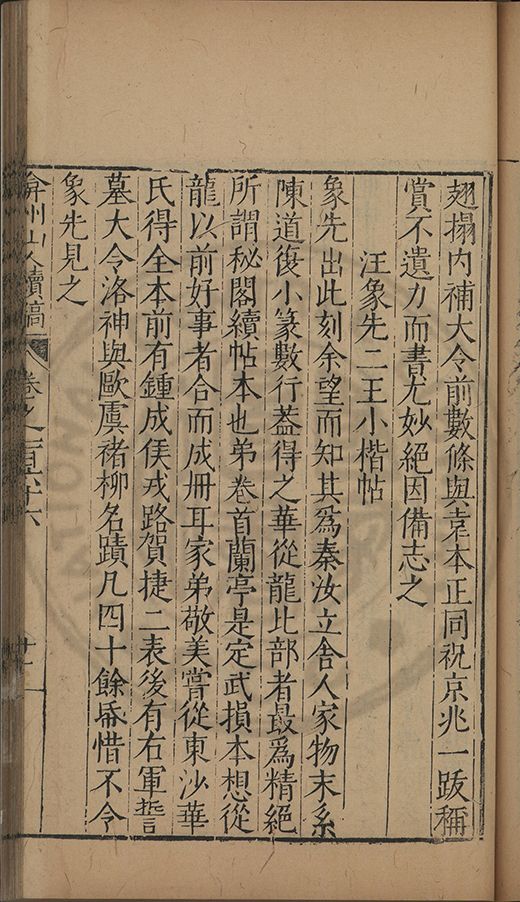 翅搨內補大令前數條與袁本正同祝京兆一跋稱
賞不遺力而書尤妙絕因備志之
汪象先二王小楷帖
象先出此刻余望而知其爲秦汝立舍人家物末系
陳道復小篆數行葢得之華從龍比部者最爲精絕
所謂秘閣續帖本也弟卷首蘭亭是定武損本想從
龍以前好事者合而成册耳家弟敬美嘗從東沙華
氏得全本前有鍾成侯戎路賀捷二表後有右軍誓
墓大令洛神與歐虞褚柳名蹟凡四十餘帋惜不令
象先見之
弇州山人續稿 卷之一百六十六